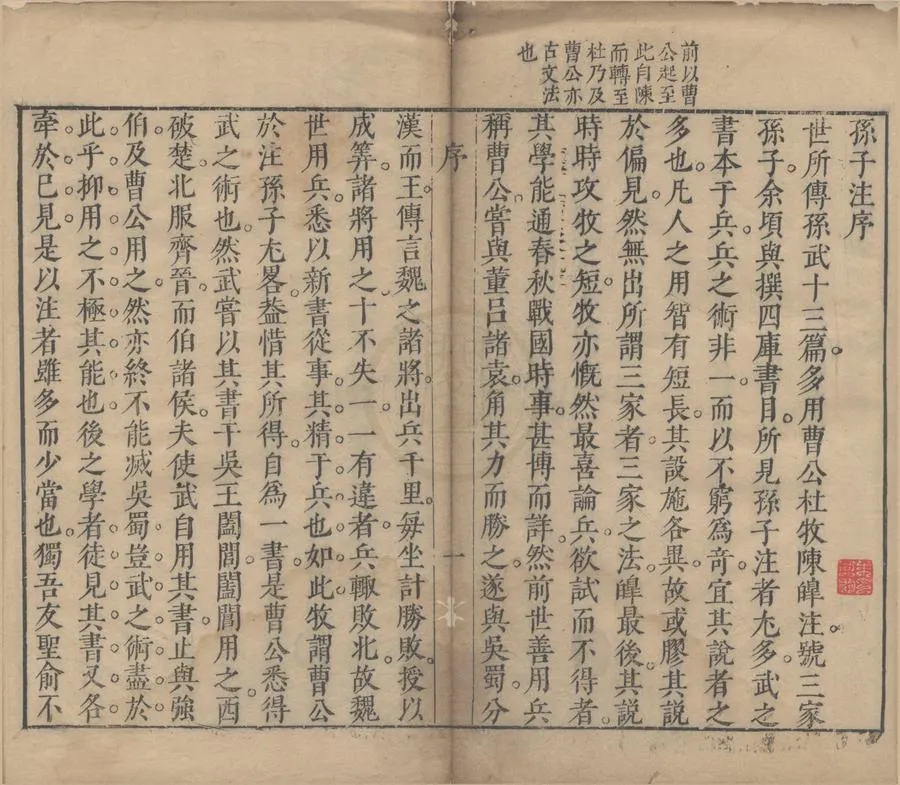 前以曹
公起至
此自陳
而轉至
杜乃及
曹公亦
古文法
也
孫子注序
世所傳孫武十三篇多用曹公杜牧陳皥注號三家
孫子余頃與撰四庫書目所見孫子注者尤多武之
書本于兵兵之術非一而以不窮爲奇宜其說者之
多也凡人之用智有短長其設施各異故或膠其說
於偏見然無出所謂三家者三家之法皥最後其說
時時攻牧之短牧亦慨然最喜論兵欲試而不得者
其學能通春秋戰國時事甚博而詳然前世善用兵
稱曹公嘗與董呂諸袁角其力而勝之遂與吳蜀分
序
一
漢而王傳言魏之諸將出兵千里每坐計勝敗授以
成筭諸將用之十不失一一有違者兵輒敗北故魏
世用兵悉以新書從事其精于兵也如此牧謂曹公
於注孫子尤畧葢惜其所得自爲一書是曹公悉得
武之術也然武嘗以其書干吳王闔閭闔閭用之西
破楚北服齊晉而伯諸侯夫使武自用其書止與強
伯及曹公用之然亦終不能滅吳蜀豈武之術盡於
此乎抑用之不極其能也後之學者徒見其書又各
牽於已見是以注者雖多而少當也獨吾友聖俞不